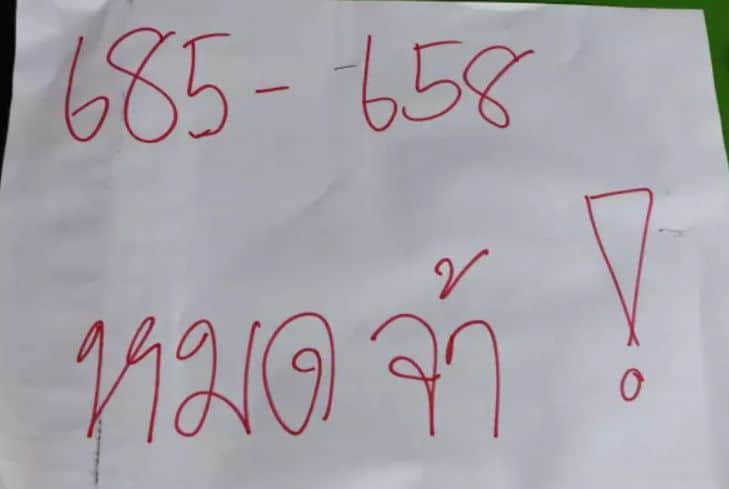 685 - 658
หมด จ้า !